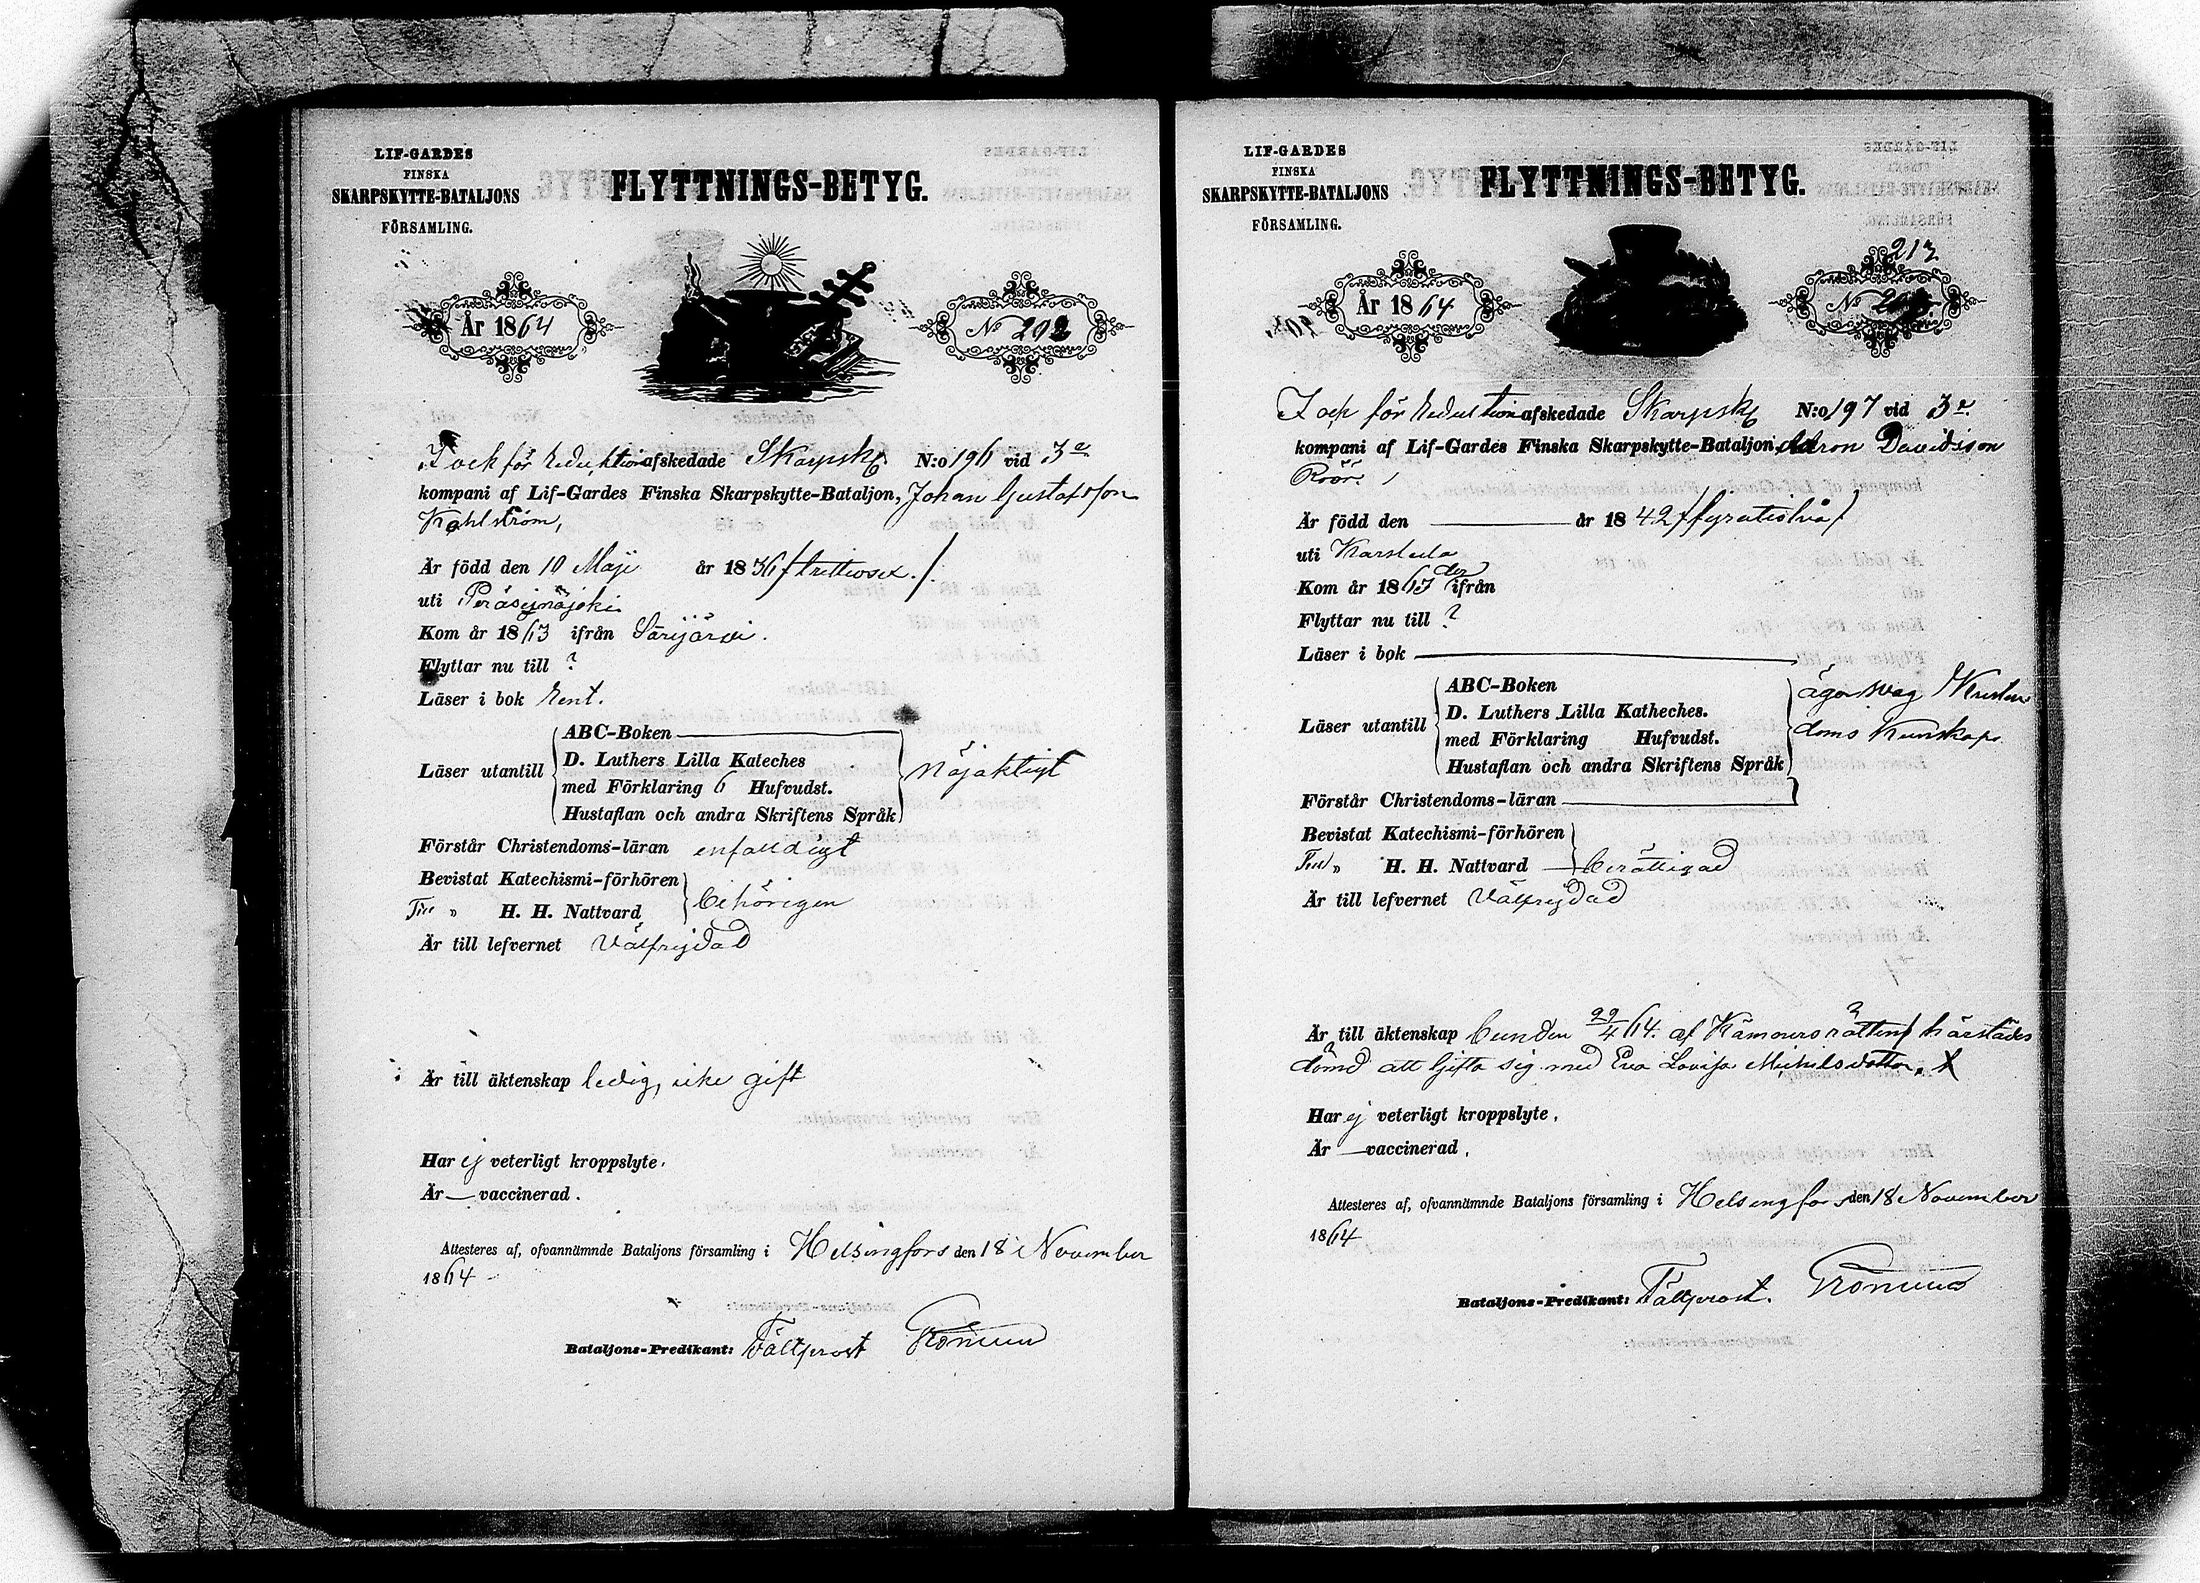 LIF-GARDES
FINSKA
SKARPSKYTTE-BATALJONS
FÖRSAMLING.
FLYTTNINGS-BETYG.
År 1864
No 202
T och för reduktion afskedade Skarpsk. N:o 196 vid 3e
kompani af Lif-Gardes Finska Skarpskytte-Bataljon, Johan Gustafsson
Kahlström,
Är född den 10 Maji år 1836 /trettiosex./.
uti Peräseinäjoki
Kom år 1863 ifrån
Flyttar nu till ?
Läser i bok rent.
Läser utantill
ABC-Boken
D. Luthers Lilla Kateches
med Förklaring 6 Hufvudst.
Hustaflan och andra Skriftens Språk
nöjaktigt
Förstår Christendoms-läran enfaldigt
Bevistat Katechismi-förhören
Till " H. H. Nattvard
behörigen
Är till lefvernet välfrejdad
Är till äktenskap ledig, icke gift
Har ej veterligt kroppslyte.
Är — vaccinerad.
Attesteres af, ofvannämnde Bataljons församling i Helsingfors den 18 November
1864
Bataljons-Predikant: Fältprost
LIF-GARDES
FINSKA
SKARPSKYTTE-BATALJONS
FÖRSAMLING.
FLYTTNINGS-BETYG.
År 1864
213
No
T och för reduktion afskedade Skarpsk. N:o 197 vid 3e
kompani af Lif-Gardes Finska Skarpskytte-Bataljon, Aaron Davidsson
Röör,
Är född den — år 1842 /fyratiotvå/
uti Karstula
Kom år 1863 der ifrån
Flyttar nu till ?
Läser i bok —
Läser utantill
ABC-Boken
D. Luthers Lilla Katheches.
med Förklaring Hufvudst.
Hustaflan och andra Skriftens Språk
äger svag Kristen
doms kunskap.
Förstår Christendoms-läran —
Bevistat Katechismi-förhören
Till " H. H. Nattvard
berättigad
Är till lefvernet välfrejdad
Är till äktenskap bunden 29/4 64. af Kämnersrätten härstädes
dömd att gifta sig med Eva Lovisa Michelsdotter.
Har ej veterligt kroppslyte.
Är — vaccinerad.
Attesteres af, ofvannämnde Bataljons församling i Helsingfors den 18 November
1864
Bataljons-Predikant: Fältprost.